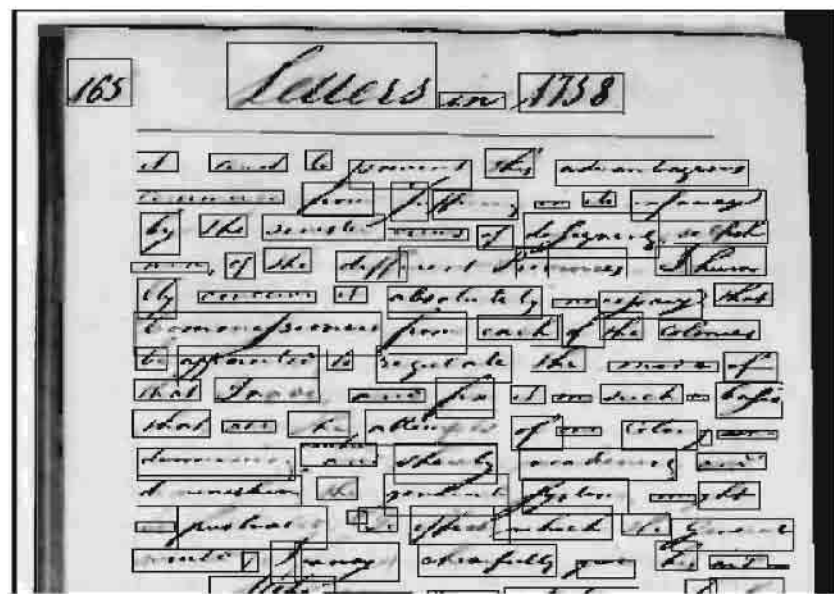 165 Letters in 1758
it and to prevent this advantageous
commerce from suffering in its infancy
by the sinister views of designing, selfish
men, of the different Provinces I humb
ly conceive it absolutely necessary that
Commissioners from each of the colonies
be appointed to regulate the mode of
that Trade, and fix it on such a basis
that all the attempts of one Colony
another, and thereby weakening and
diminishing the general System might
be frustrated To effect which the General
would I fancy cheerfully give his aid.